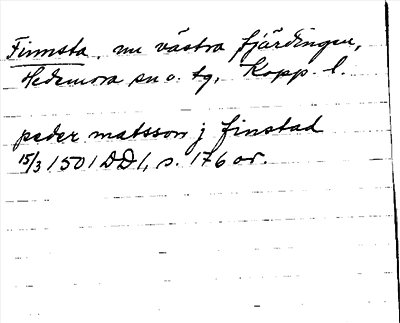 Finnsta, nu västra fjärdingen,
Hedemora sn o. tg, Kopp. l.
peder matsson j finstad
15/3 1501 DD 1, s. 176 or.